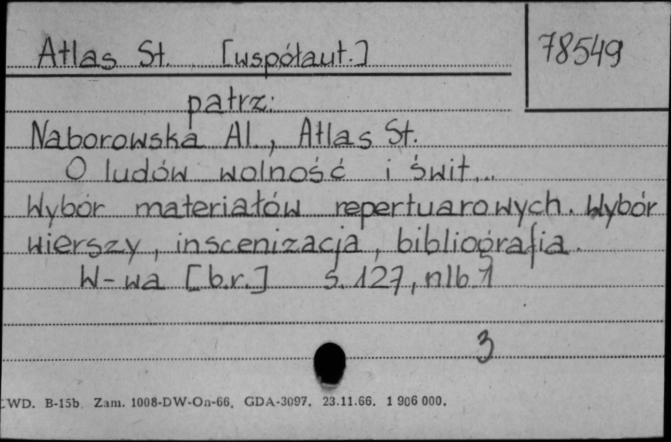 Atlas St. [współaut.]
78549
patrz:
Naborowska Al., Atlas St.
O ludów wolność i świt...
Wybór materiałów repertuarowych. Wybór
wierszy, inscenizacja, bibliografia.
W-wa [b.r.] s. 127, nlb 1
3
LWD. B-15b Zam. 1008-DW-On-66, GDA-3097, 23.11.66. 1 906 000.